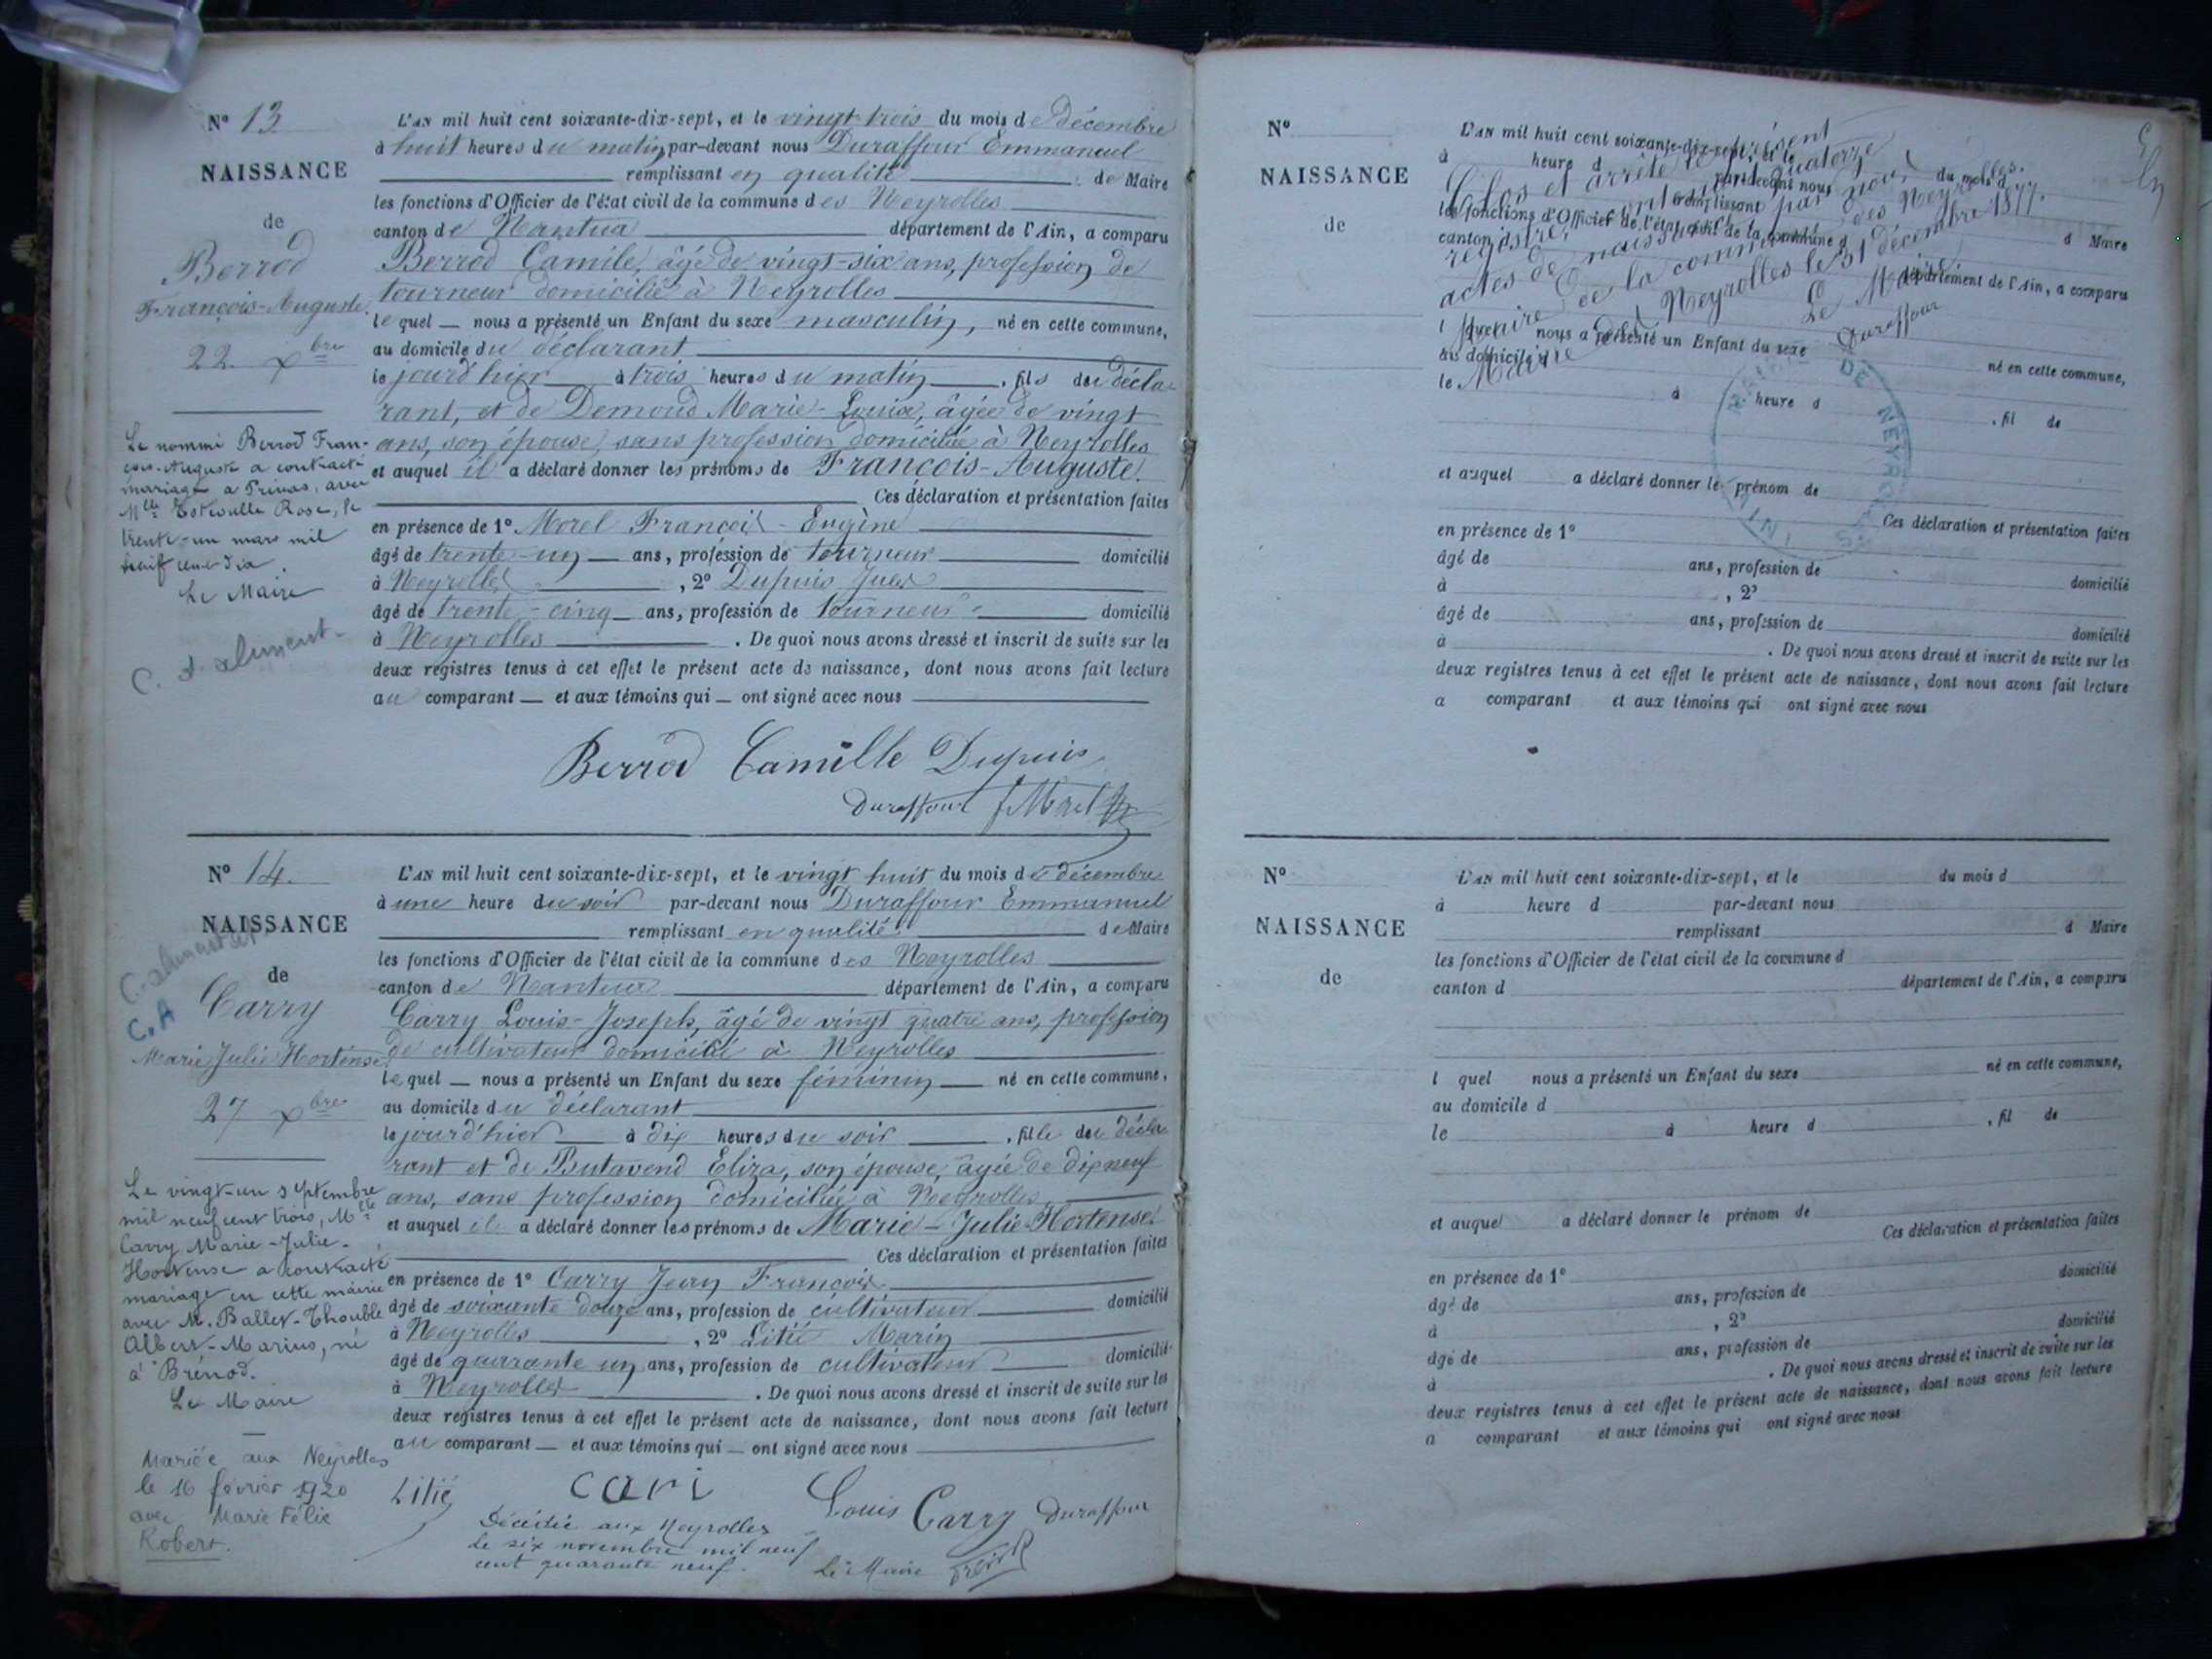 N° 13
NAISSANCE
de
Berrod
François-Auguste.
22 Xbre
Le nommé Berrod Fran-
çois-Auguste a contracté
mariage à Privas, avec
Mlle Rose, le
trente-un mars mil
neuf cent dix.
Le Maire
L'AN mil huit cent soixante-dix-sept, et le vingt-trois du mois de décembre
à huit heures du matin par-devant nous Duraffour Emmanuel
remplissant en qualité de Maire
les fonctions d'Officier de l'état civil de la commune des Neyrolles
canton de Nantua département de l'Ain, a comparu
Berrod Camile, âgé de vingt-six ans, profession de
tourneur domicilié à Neyrolles
lequel nous a présenté un Enfant du sexe masculin, né en cette commune,
au domicile du déclarant
le jourd'hier à trois heures du matin, fils du décla-
rant, et de Demond Marie-Louise, âgée de vingt
ans, son épouse, sans profession domiciliée à Neyrolles
et auquel il a déclaré donner les prénoms de François-Auguste.
Ces déclaration et présentation faites
en présence de 1° Morel François-Eugène
âgé de trente-un ans, profession de tourneur domicilié
à Neyrolles, 2° Dupuis Jules
âgé de trente-cinq ans, profession de tourneur domicilié
à Neyrolles. De quoi nous avons dressé et inscrit de suite sur les
deux registres tenus à cet effet le présent acte de naissance, dont nous avons fait lecture
au comparant et aux témoins qui ont signé avec nous
Berrod Camille Dupuis
Duraffour Morel
N° 14.
NAISSANCE
de
C.A
Carry
Marie Julie Hortense.
27 Xbre
Le vingt-un septembre
mil neuf cent trois, Mlle
Carry Marie-Julie-
Hortense a contracté
mariage en cette mairie
avec M. Ballet-Thouble
Albert-Marius, né
à Brénod.
Le Maire
Mariée aux Neyrolles
le 16 février 1920
avec Marie Félix
Robert.
L'AN mil huit cent soixante-dix-sept, et le vingt huit du mois de décembre
à une heure du soir par-devant nous Duraffour Emmanuel
remplissant en qualité de Maire
les fonctions d'Officier de l'état civil de la commune des Neyrolles
canton de Nantua département de l'Ain, a comparu
Carry Louis-Joseph, âgé de vingt quatre ans, profession
de cultivateur domicilié à Neyrolles
lequel nous a présenté un Enfant du sexe féminin né en cette commune,
au domicile du déclarant
le jourd'hier à dix heures du soir, fille du décla
rant et de Butavend Eliza, son épouse, âgée de dixneuf
ans, sans profession domiciliée à Neyrolles
et auquel il a déclaré donner les prénoms de Marie-Julie-Hortense.
Ces déclaration et présentation faites
en présence de 1° Carry Jean François
âgé de soixante douze ans, profession de cultivateur domicilié
à Neyrolles, 2° Litié Marin
âgé de quarante un ans, profession de cultivateur domicilié
à Neyrolles. De quoi nous avons dressé et inscrit de suite sur les
deux registres tenus à cet effet le présent acte de naissance, dont nous avons fait lecture
au comparant et aux témoins qui ont signé avec nous
Litié cari Louis Carry Duraffour
Décédée aux Neyrolles
le six novembre mil neuf
cent quarante neuf.
Le Maire
N°
NAISSANCE
de
L'AN mil huit cent soixante-dix-sept, et le du mois d
à heure d par-devant nous
remplissant d Maire
les fonctions d'Officier de l'état civil de la commune d
canton d département de l'Ain, a comparu
Clos et arrêté le présent
registre contenant quatorze
actes de naissance par nous
Maire de la commune des Neyrolles.
Neyrolles le 31 décembre 1877.
Le Maire
Duraffour
MAIRIE DE NEYROLLES
(AIN)
l quel nous a présenté un Enfant du sexe né en cette commune,
au domicile d
le à heure d, fil de
et auquel a déclaré donner le prénom de
Ces déclaration et présentation faites
en présence de 1°
âgé de ans, profession de domicilié
à, 2°
âgé de ans, profession de domicilié
à. De quoi nous avons dressé et inscrit de suite sur les
deux registres tenus à cet effet le présent acte de naissance, dont nous avons fait lecture
a comparant et aux témoins qui ont signé avec nous
N°
NAISSANCE
de
L'AN mil huit cent soixante-dix-sept, et le du mois d
à heure d par-devant nous
remplissant d Maire
les fonctions d'Officier de l'état civil de la commune d
canton d département de l'Ain, a comparu
l quel nous a présenté un Enfant du sexe né en cette commune,
au domicile d
le à heure d, fil de
et auquel a déclaré donner le prénom de
Ces déclaration et présentation faites
en présence de 1°
âgé de ans, profession de domicilié
à, 2°
âgé de ans, profession de domicilié
à. De quoi nous avons dressé et inscrit de suite sur les
deux registres tenus à cet effet le présent acte de naissance, dont nous avons fait lecture
a comparant et aux témoins qui ont signé avec nous